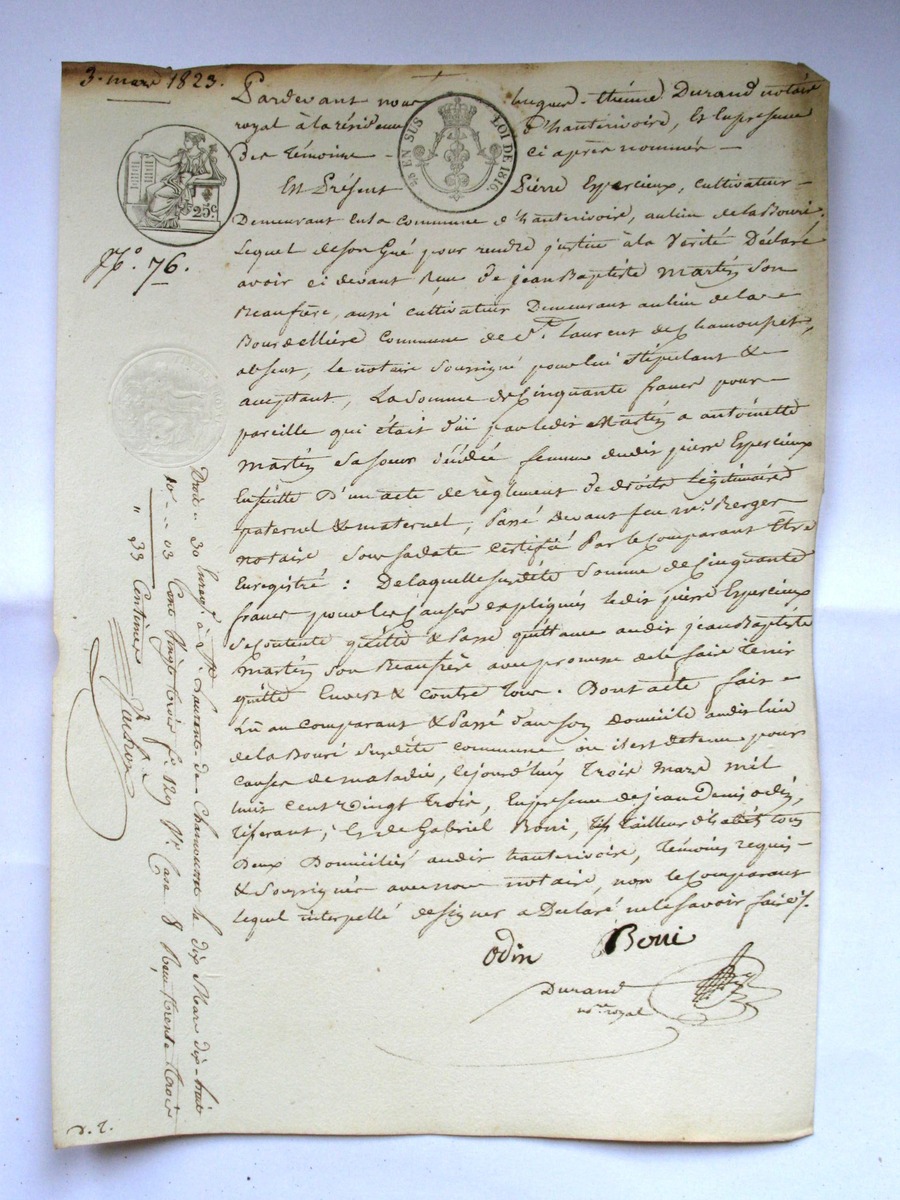 3. mars 1823.
Pardevant nous hugues-étienne Durand notaire
royal à la résidence d'hauterivoire, Et En présence
Des témoins - ci après nommés -
En Présent Pierre Expercieux, cultivateur
Demeurant En la commune d'hauterivoire, au lieu de la Bouré,
Lequel de son Gré pour rendre justice à la Vérité Déclare
avoir ci devant Reçu De jean Baptiste martin Son
Beaufrère, aussi cultivateur Demeurant au lieu de la
Bourdellière commune de St. Laurent de Chamousset,
absent, le notaire soussigné pour lui stipulant &
acceptant, La Somme de Cinquante francs pour
pareille qui était düe par ledit Martin a antoinette
Martin Sa soeur décédée femme dudit pierre Expercieux
Ensuitte D'un acte de règlement de droits Légitimaires
paternel & maternel, Passé Devant feu me. Berger
notaire Sous sa date certifié Par le comparant Etre
Enregistré : De laquelle susdite Somme de Cinquante
francs pour les Causes expliquées ledit pierre Expercieux
Se Contente quitte & Passe quittance audit jean Baptiste
Martin Son Beaufrère avec promesse de le faire tenir
quitte Envers & contre tous. Dont acte fait &
Lu au comparant & Passé dans son domicile audit lieu
de la Bouré susdite commune où il est détenu pour
causes de maladie, Cejourd'huy Trois Mars mil
huit Cent Vingt Trois, En présence de jean Denis odin,
tisserant, Et de Gabriel Boni, tailleur d'habits tous
Deux Domiciliés audit hauterivoire, Témoins requis
& Soussignés avec nous notaire, non le comparant
lequel interpellé de signer a Déclaré ne le savoir faire
odin Boni
Durand
nore. royal
EN SUS LOI DE 1816.
25c
No. 76.
Enregé. à St. Laurent de Chamousset le dix Mars dix-huit
Cent Vingt trois fo. 129 Vo. Case 8 Reçu trente trois
Centimes
Droit 30
10e. 03
" 33
d. t.